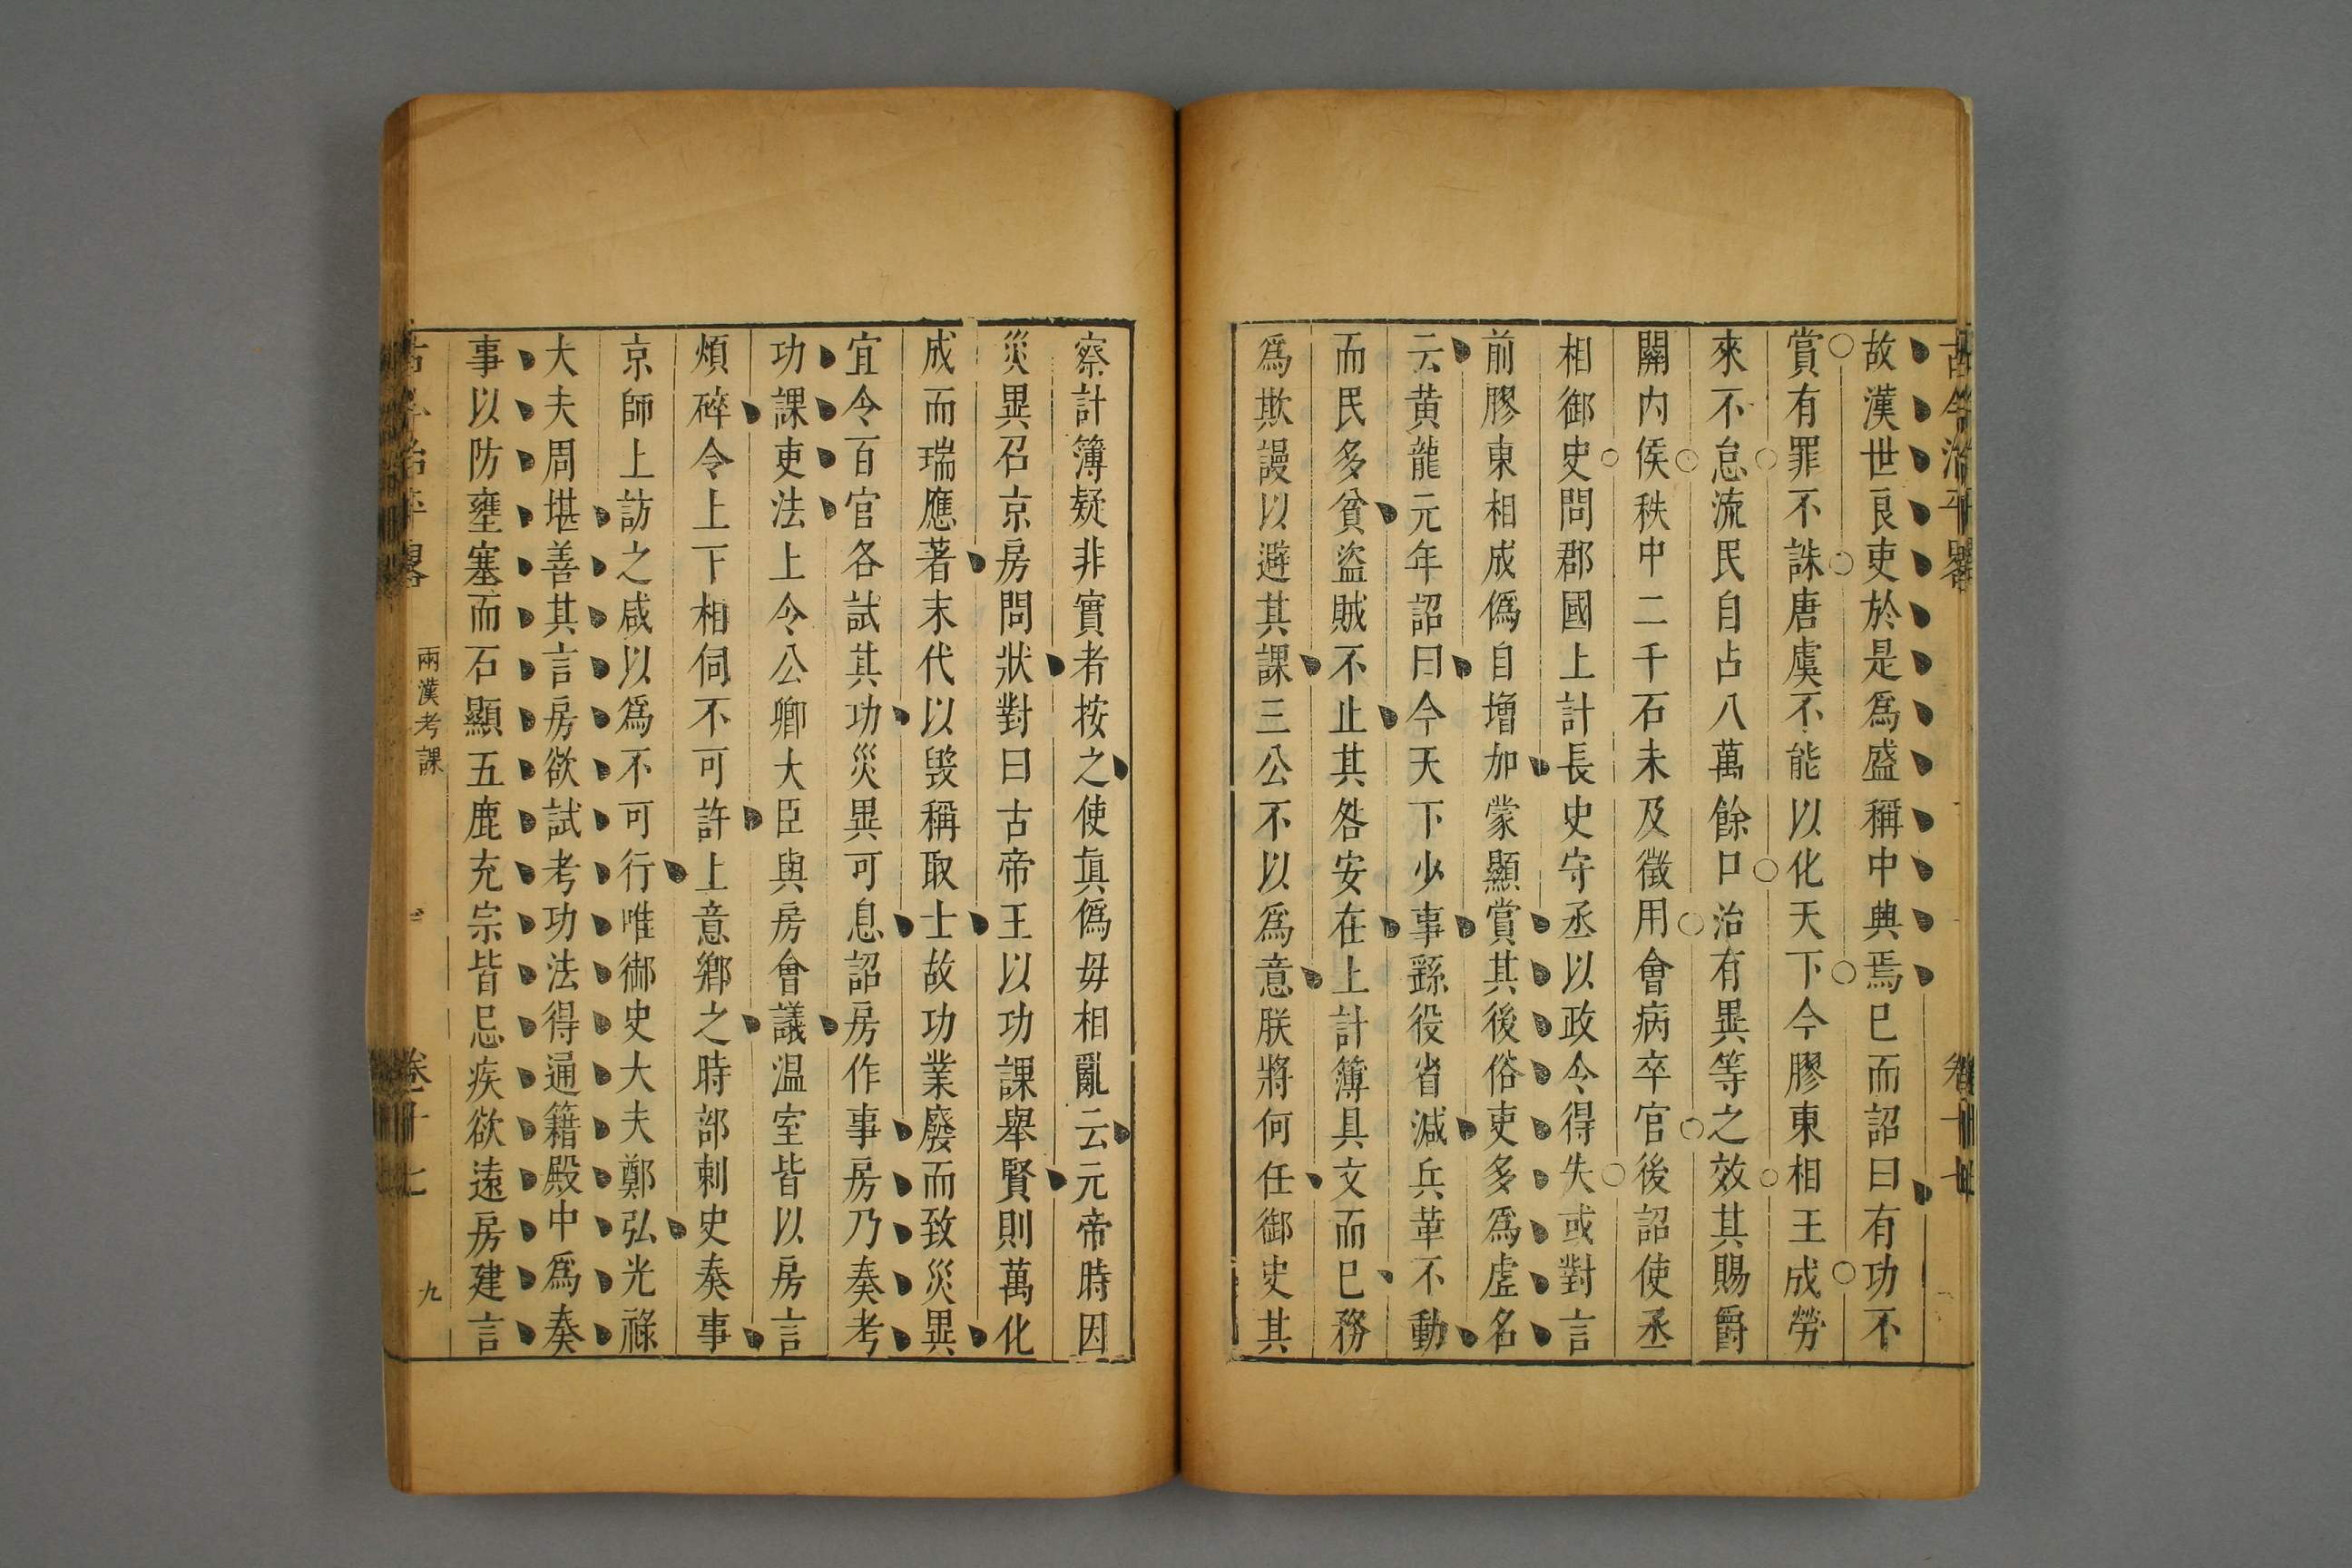 古今治平畧
卷十七
故漢世良吏於是爲盛稱中典焉已而詔曰有功不
賞有罪不誅唐虞不能以化天下今膠東相王成勞
來不怠流民自占八萬餘口治有異等之效其賜爵
關內侯秩中二千石未及徵用會病卒官後詔使丞
相御史問郡國上計長史守丞以政令得失或對言
前膠東相成僞自增加蒙顯賞其後俗吏多爲虛名
云黃龍元年詔曰今天下少事繇役省減兵革不動
而民多貧盜賊不止其咎安在上計簿具文而已務
爲欺謾以避其課三公不以爲意朕將何任御史其
察計簿疑非實者按之使眞僞毋相亂云元帝時因
災異召京房問狀對曰古帝王以功課舉賢則萬化
成而瑞應著末代以毀稱取士故功業廢而致災異
宜令百官各試其功災異可息詔房作事房乃奏考
功課吏法上令公卿大臣與房會議溫室皆以房言
煩碎令上下相伺不可許上意鄕之時部刺史奏事
京師上訪之咸以爲不可行唯御史大夫鄭弘光祿
大夫周堪善其言房欲試考功法得通籍殿中爲奏
事以防壅塞而石顯五鹿充宗皆忌疾欲遠房建言
古今治平畧
兩漢考課
卷十七
九